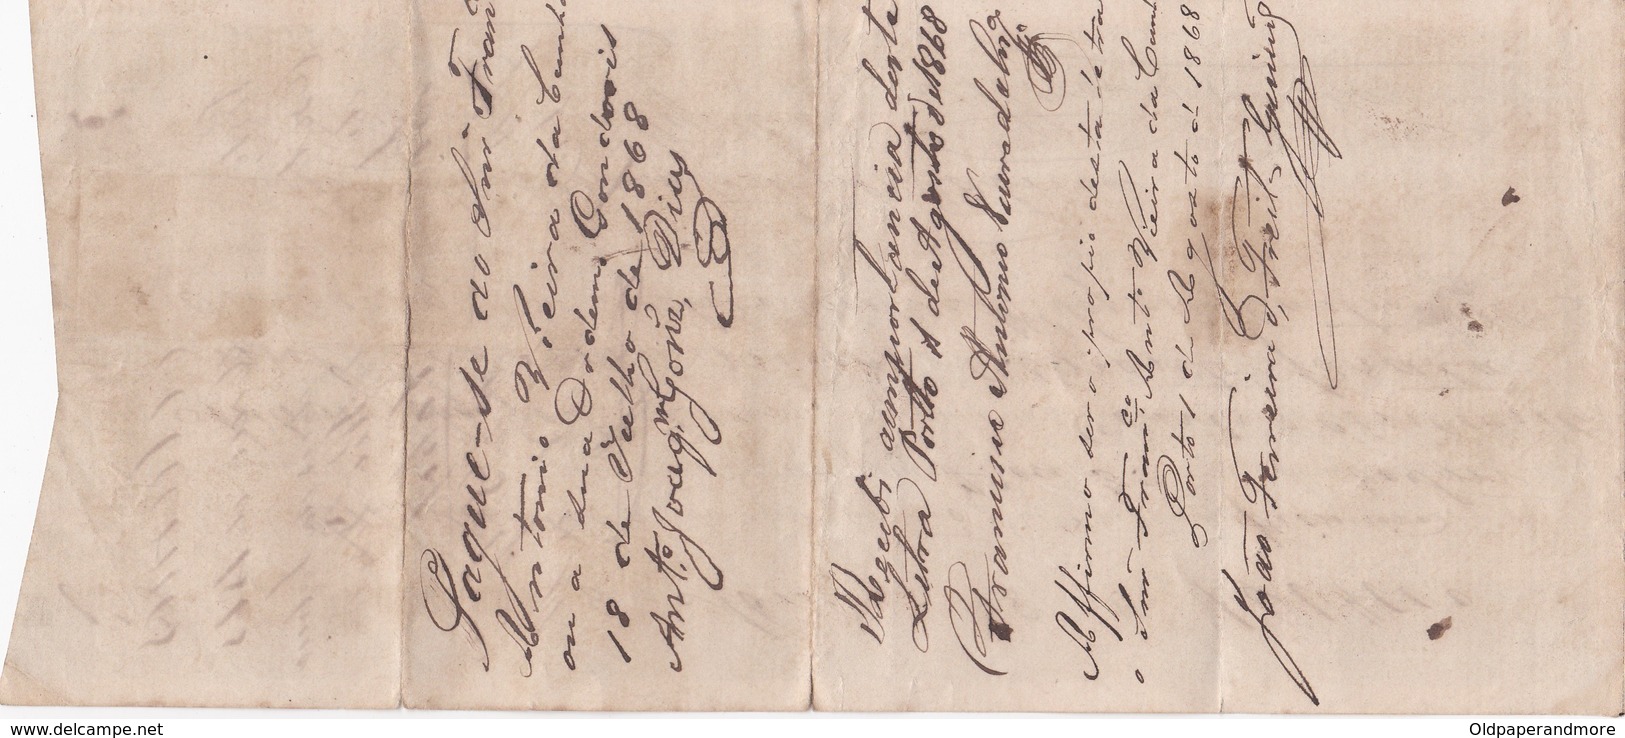 Paguem-se ao Snr Fran
Antonio Vieira da Cunha
ou a sua Ordem Gondoris
18 de Julho de 1868
Ant.º Joaq.m Gonz. Dias
Recebi a importancia desta
Letra Porto 1 de Agosto de 1868
Francisco Antonio
Affirmo ser o propio desta letra
o Snr Fran.co Ant.º Vieira da Cunha
Porto 1 de Agosto d 1868
João Ferreira
delcampe.net
Oldpaperandmore